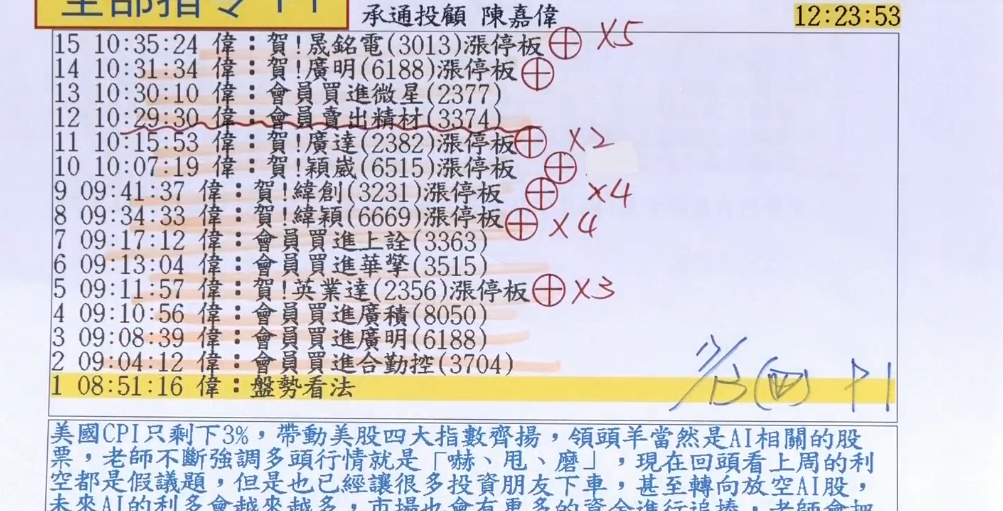 全部指令 P1
承通投顧 陳嘉偉
12:23:53
15 10:35:24 偉：賀!晟銘電(3013)漲停板 ⊕ X5
14 10:31:34 偉：賀!廣明(6188)漲停板 ⊕
13 10:30:10 偉：會員買進微星(2377)
12 10:29:30 偉：會員賣出精材(3374)
11 10:15:53 偉：賀!廣達(2382)漲停板 ⊕ X2
10 10:07:19 偉：賀!穎崴(6515)漲停板 ⊕
9 09:41:37 偉：賀!緯創(3231)漲停板 ⊕ X4
8 09:34:33 偉：賀!緯穎(6669)漲停板 ⊕ X4
7 09:17:12 偉：會員買進上詮(3363)
6 09:13:04 偉：會員買進華擎(3515)
5 09:11:57 偉：賀!英業達(2356)漲停板 ⊕ X3
4 09:10:56 偉：會員買進廣積(8050)
3 09:08:39 偉：會員買進廣明(6188)
2 09:04:12 偉：會員買進合勤控(3704)
1 08:51:16 偉：盤勢看法
7/13(四) P1
美國CPI只剩下3%，帶動美股四大指數齊揚，領頭羊當然是AI相關的股
票，老師不斷強調多頭行情就是「嚇、甩、磨」，現在回頭看上周的利
空都是假議題，但是也已經讓很多投資朋友下車，甚至轉向放空AI股，
未來AI的利多會越來越多，市場也會有更多的資金進行追捧，老師會把